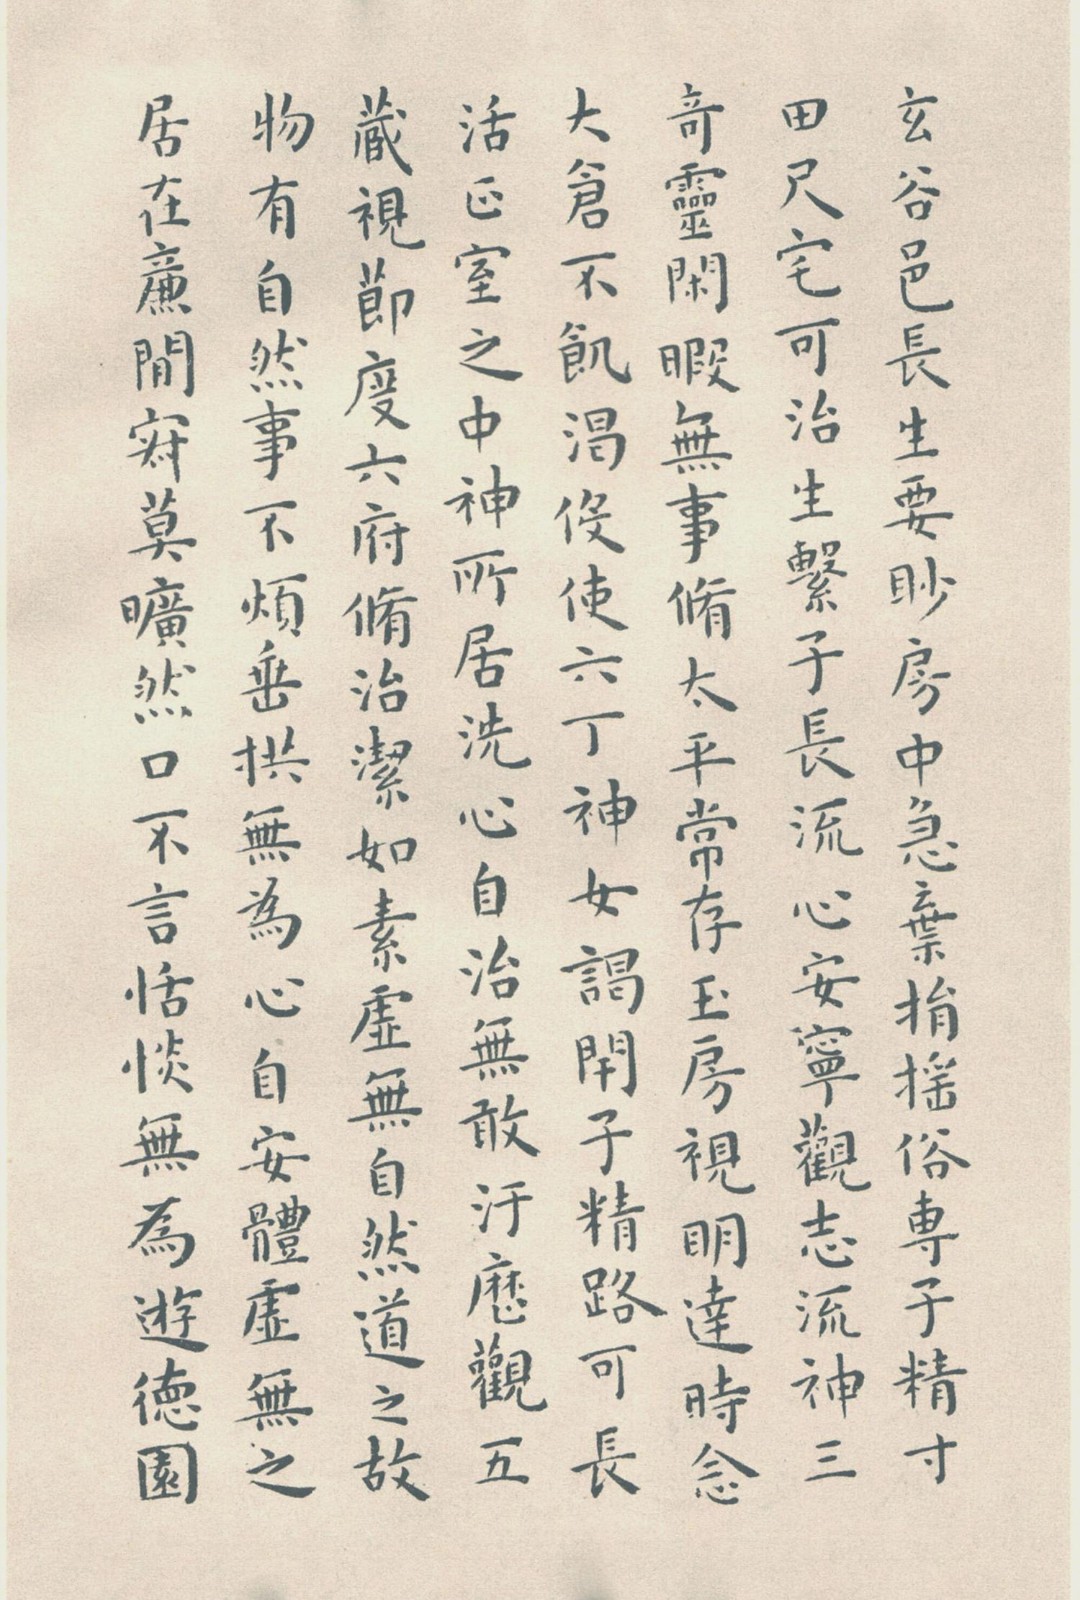 玄谷邑長生要眇房中急棄捐搖俗専子精寸
田尺宅可治生繫子長流心安寧觀志流神三
奇靈閑暇無事脩太平常存玉房視明達時念
大倉不飢渴役使六丁神女謁閇子精路可長
活正室之中神所居洗心自治無敢汙歷觀五
藏視節度六府脩治潔如素虛無自然道之故
物有自然事不煩垂拱無為心自安體虛無之
居在廉間寂莫曠然口不言恬惔無為遊德園